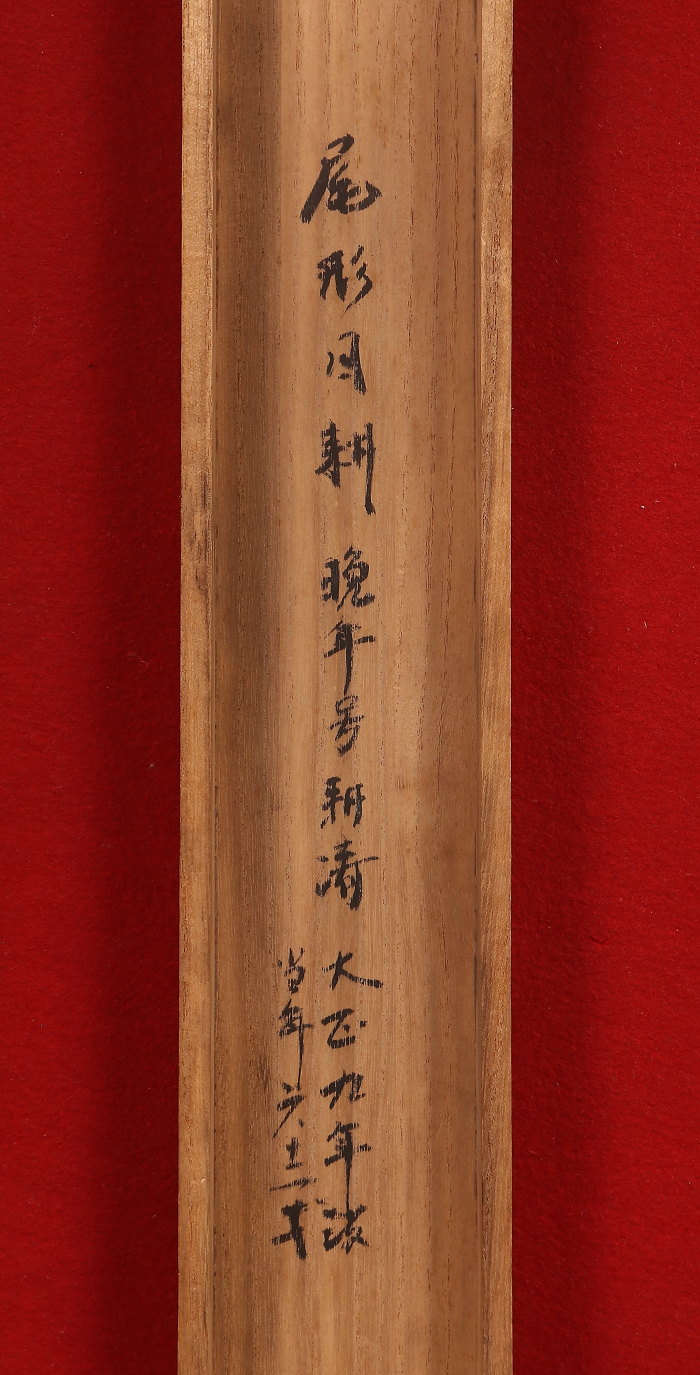 尾形月耕 晩年号耕
大正九年没
当年六十二才